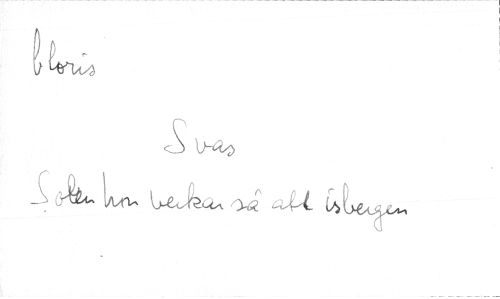 bloris
Svas
Solen hon verkar så att isbergen